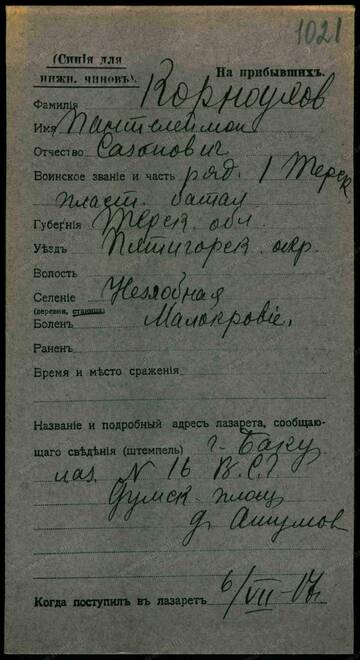 1021
(Синія для
нижн. чиновъ).
На прибывшихъ.
Фамилія Корноухов
Имя Пантелеймон
Отчество Сазонович
Воинское званіе и часть ряд. 1 Терск.
пласт. батал
Губернія Терск. обл.
Уѣздъ Пятигорск. окр.
Волость
Селеніе Незлобная
(деревня, станица)
Боленъ Малокровіе,
Раненъ
Время и мѣсто сраженія
Названіе и подробный адресъ лазарета, сообщаю-
щаго свѣдѣнія (штемпель) г. Баку
лаз. N 16 В.С.Г
Думск. площ
д. Ашумов
Когда поступилъ въ лазаретъ 6/VII-17г.